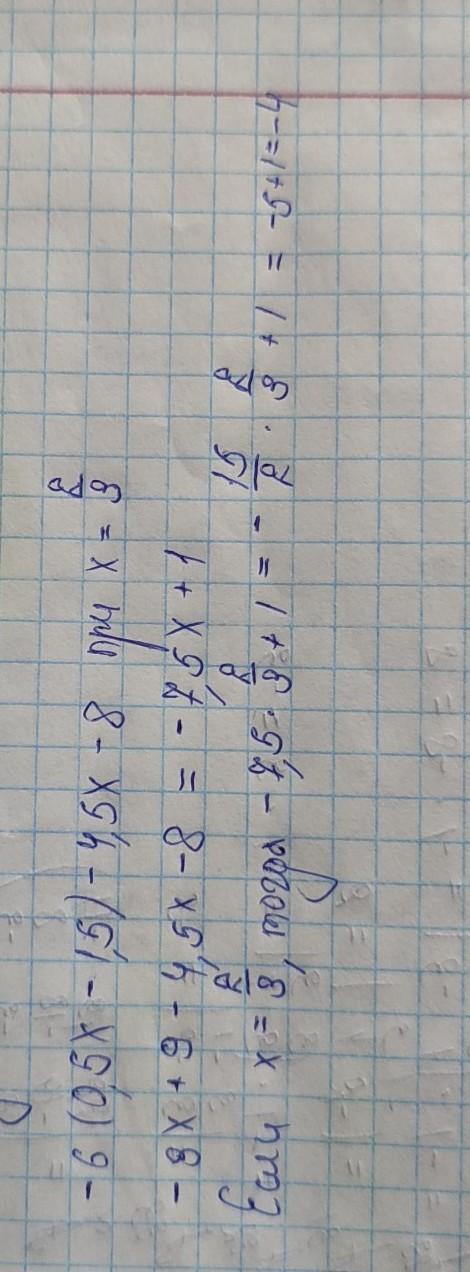 -6 (0,5x - 1,5) - 4,5x - 8 при x = 2/3
-3x + 9 - 4,5x - 8 = -7,5x + 1
Если x = 2/3, тогда -7,5 · 2/3 + 1 = - 15/2 · 2/3 + 1 = -5+1=-4